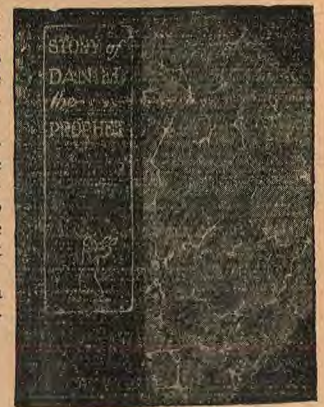 STORY of
DANIEL
the
PROPHET